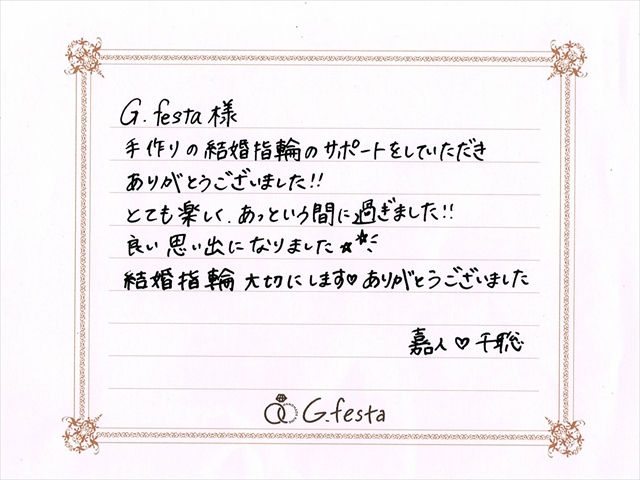 G.festa様
手作りの結婚指輪のサポートをしていただき
ありがとうございました!!
とても楽しく、あっという間に過ぎました!!
良い思い出になりました☆☆
結婚指輪 大切にします♡ありがとうございました
嘉人♡千聡
G.festa